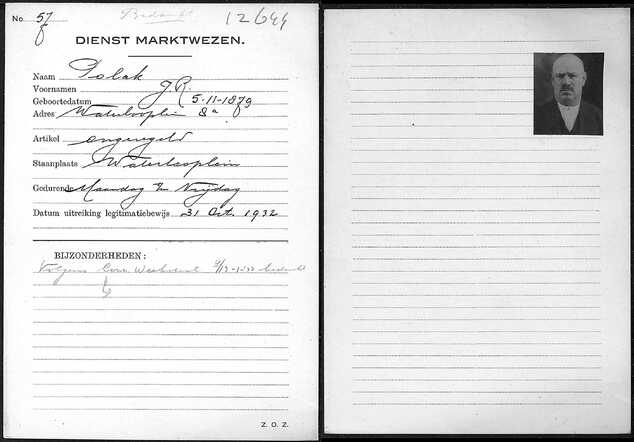 No 57 Bedankt 12644
DIENST MARKTWEZEN.
Naam Polak
Voornamen J.R.
Geboortedatum 5-11-1879
Adres Waterlooplein 8a
Artikel ongeregeld
Staanplaats Waterlooplein
Gedurende Maandag t/m Vrijdag
Datum uitreiking legitimatiebewijs 31 Oct. 1932
BIJZONDERHEDEN:
Volgens
Z. O. Z.